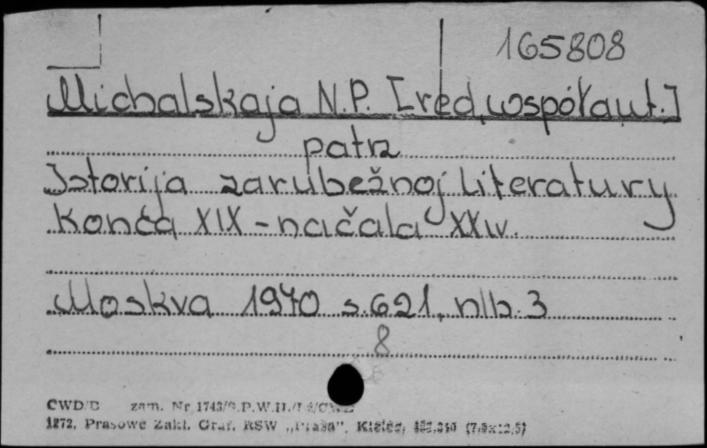 165808
Michalskaja N.P. [red, współaut.]
patrz
Istorija zarubežnoj literatury
konca XIX - načala XX w.
Moskva 1970 s. 621, nlb. 3
8
CWD/D zam. Nr 1743/
1872. Prasowe Zakł. Graf. RSW „Prasa”, Kielce,